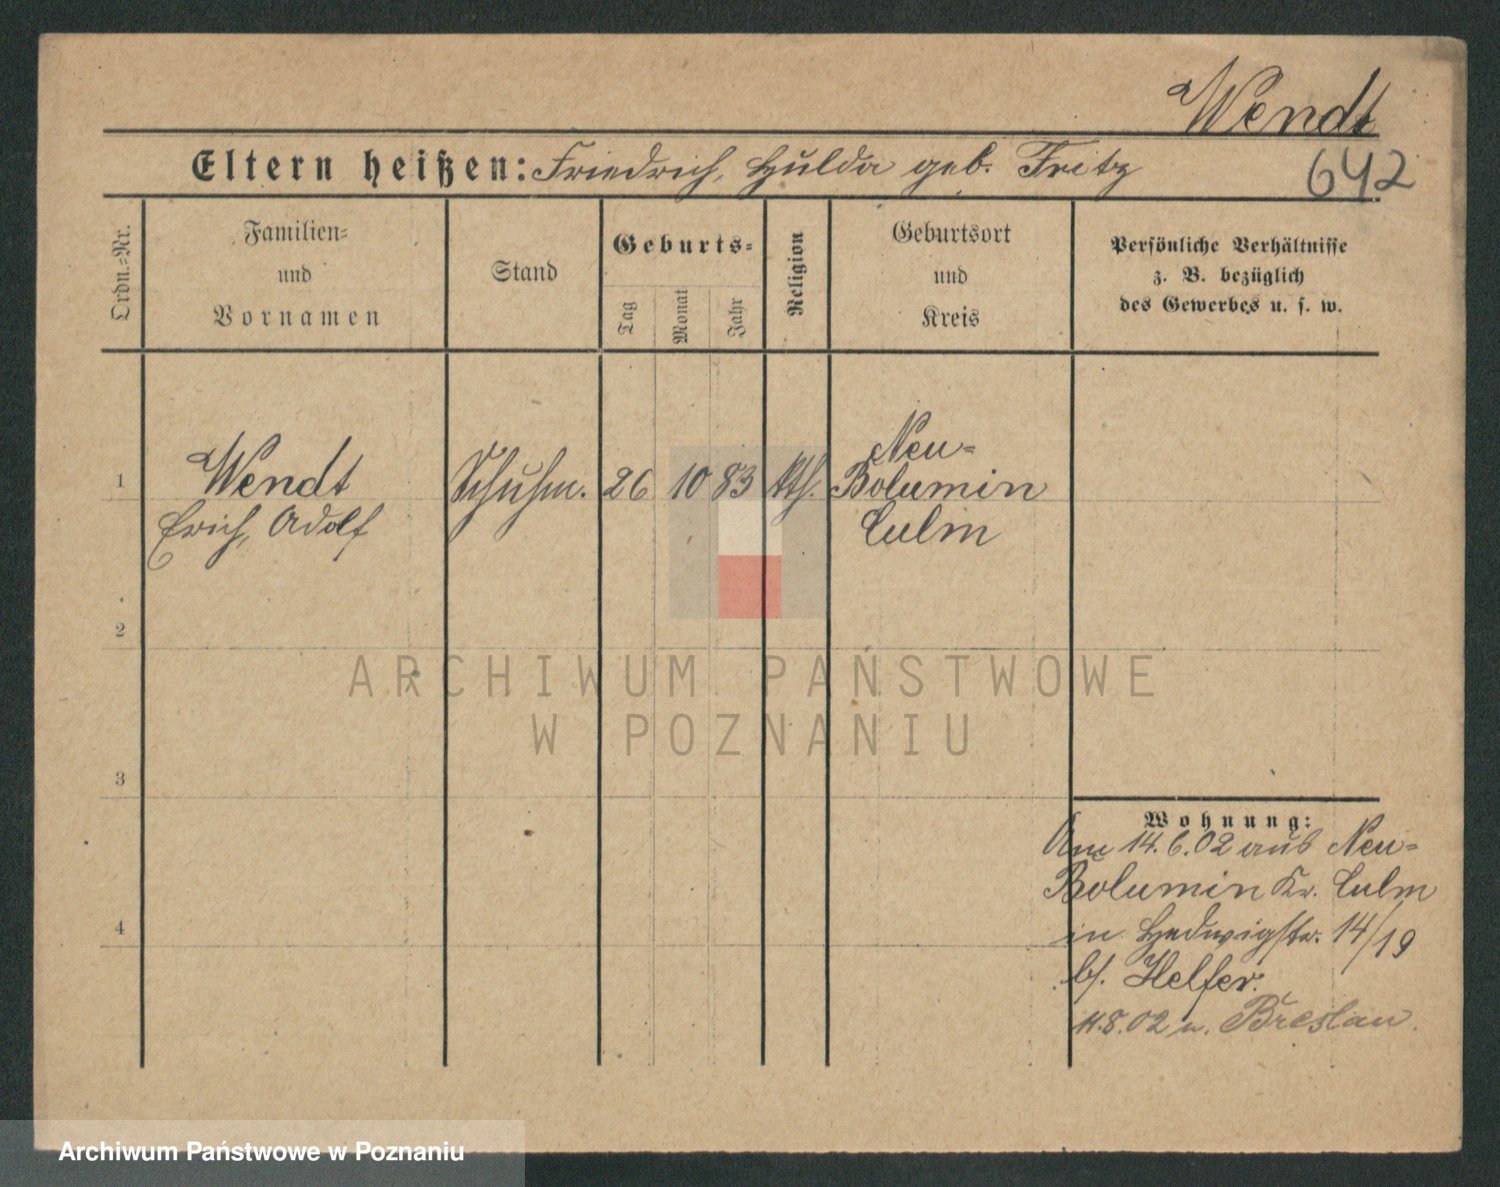 Wendt
Eltern heißen: Friedrich, Hulda geb. Fritz
642
Ordn.-Nr.
Familien-
und
Vornamen
Stand
Geburts-
Tag
Monat
Jahr
Religion
Geburtsort
und
Kreis
Persönliche Verhältnisse
z. B. bezüglich
des Gewerbes u. s. w.
1
Wendt
Erich, Adolf
Schuhm.
26
10
83
kth.
Neu-
Bolumin
Culm
2
3
4
ARCHIWUM PAŃSTWOWE
W POZNANIU
Wohnung:
Am 14.6.02 aus Neu-
Bolumin Kr. Culm
in Hedwigstr. 14/19
b/. Helfer.
11.8.02 n. Breslau.
Archiwum Państwowe w Poznaniu